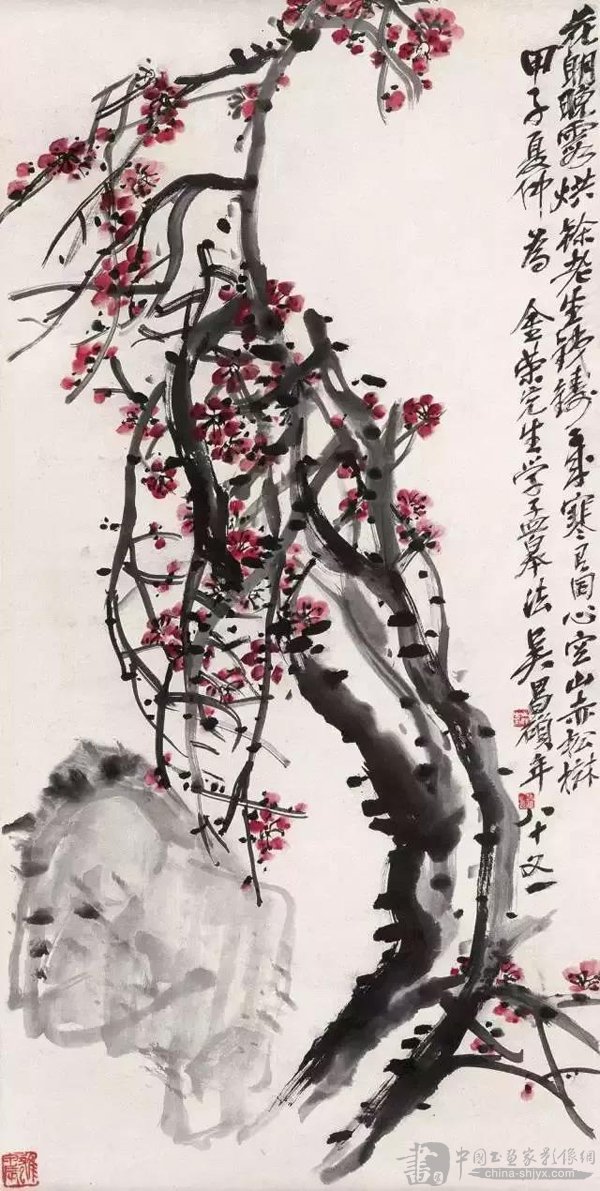 花明晚霞烘榦老生鐵鑄歲寒有同心空山赤松樹
甲子夏仲 為 金榮先生學孟皋法 吳昌碩年八十又一
中國书画家影像網
china-shjyx.com